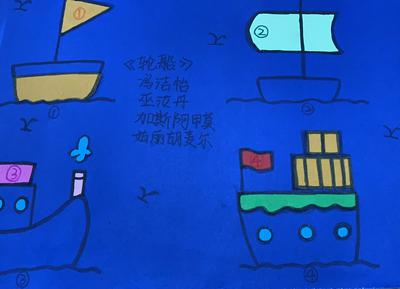 ①
②
《轮船》
冯洁怡
巫汝丹
加斯阿甲莫
胡麦尔
①
②
③
④
③
④